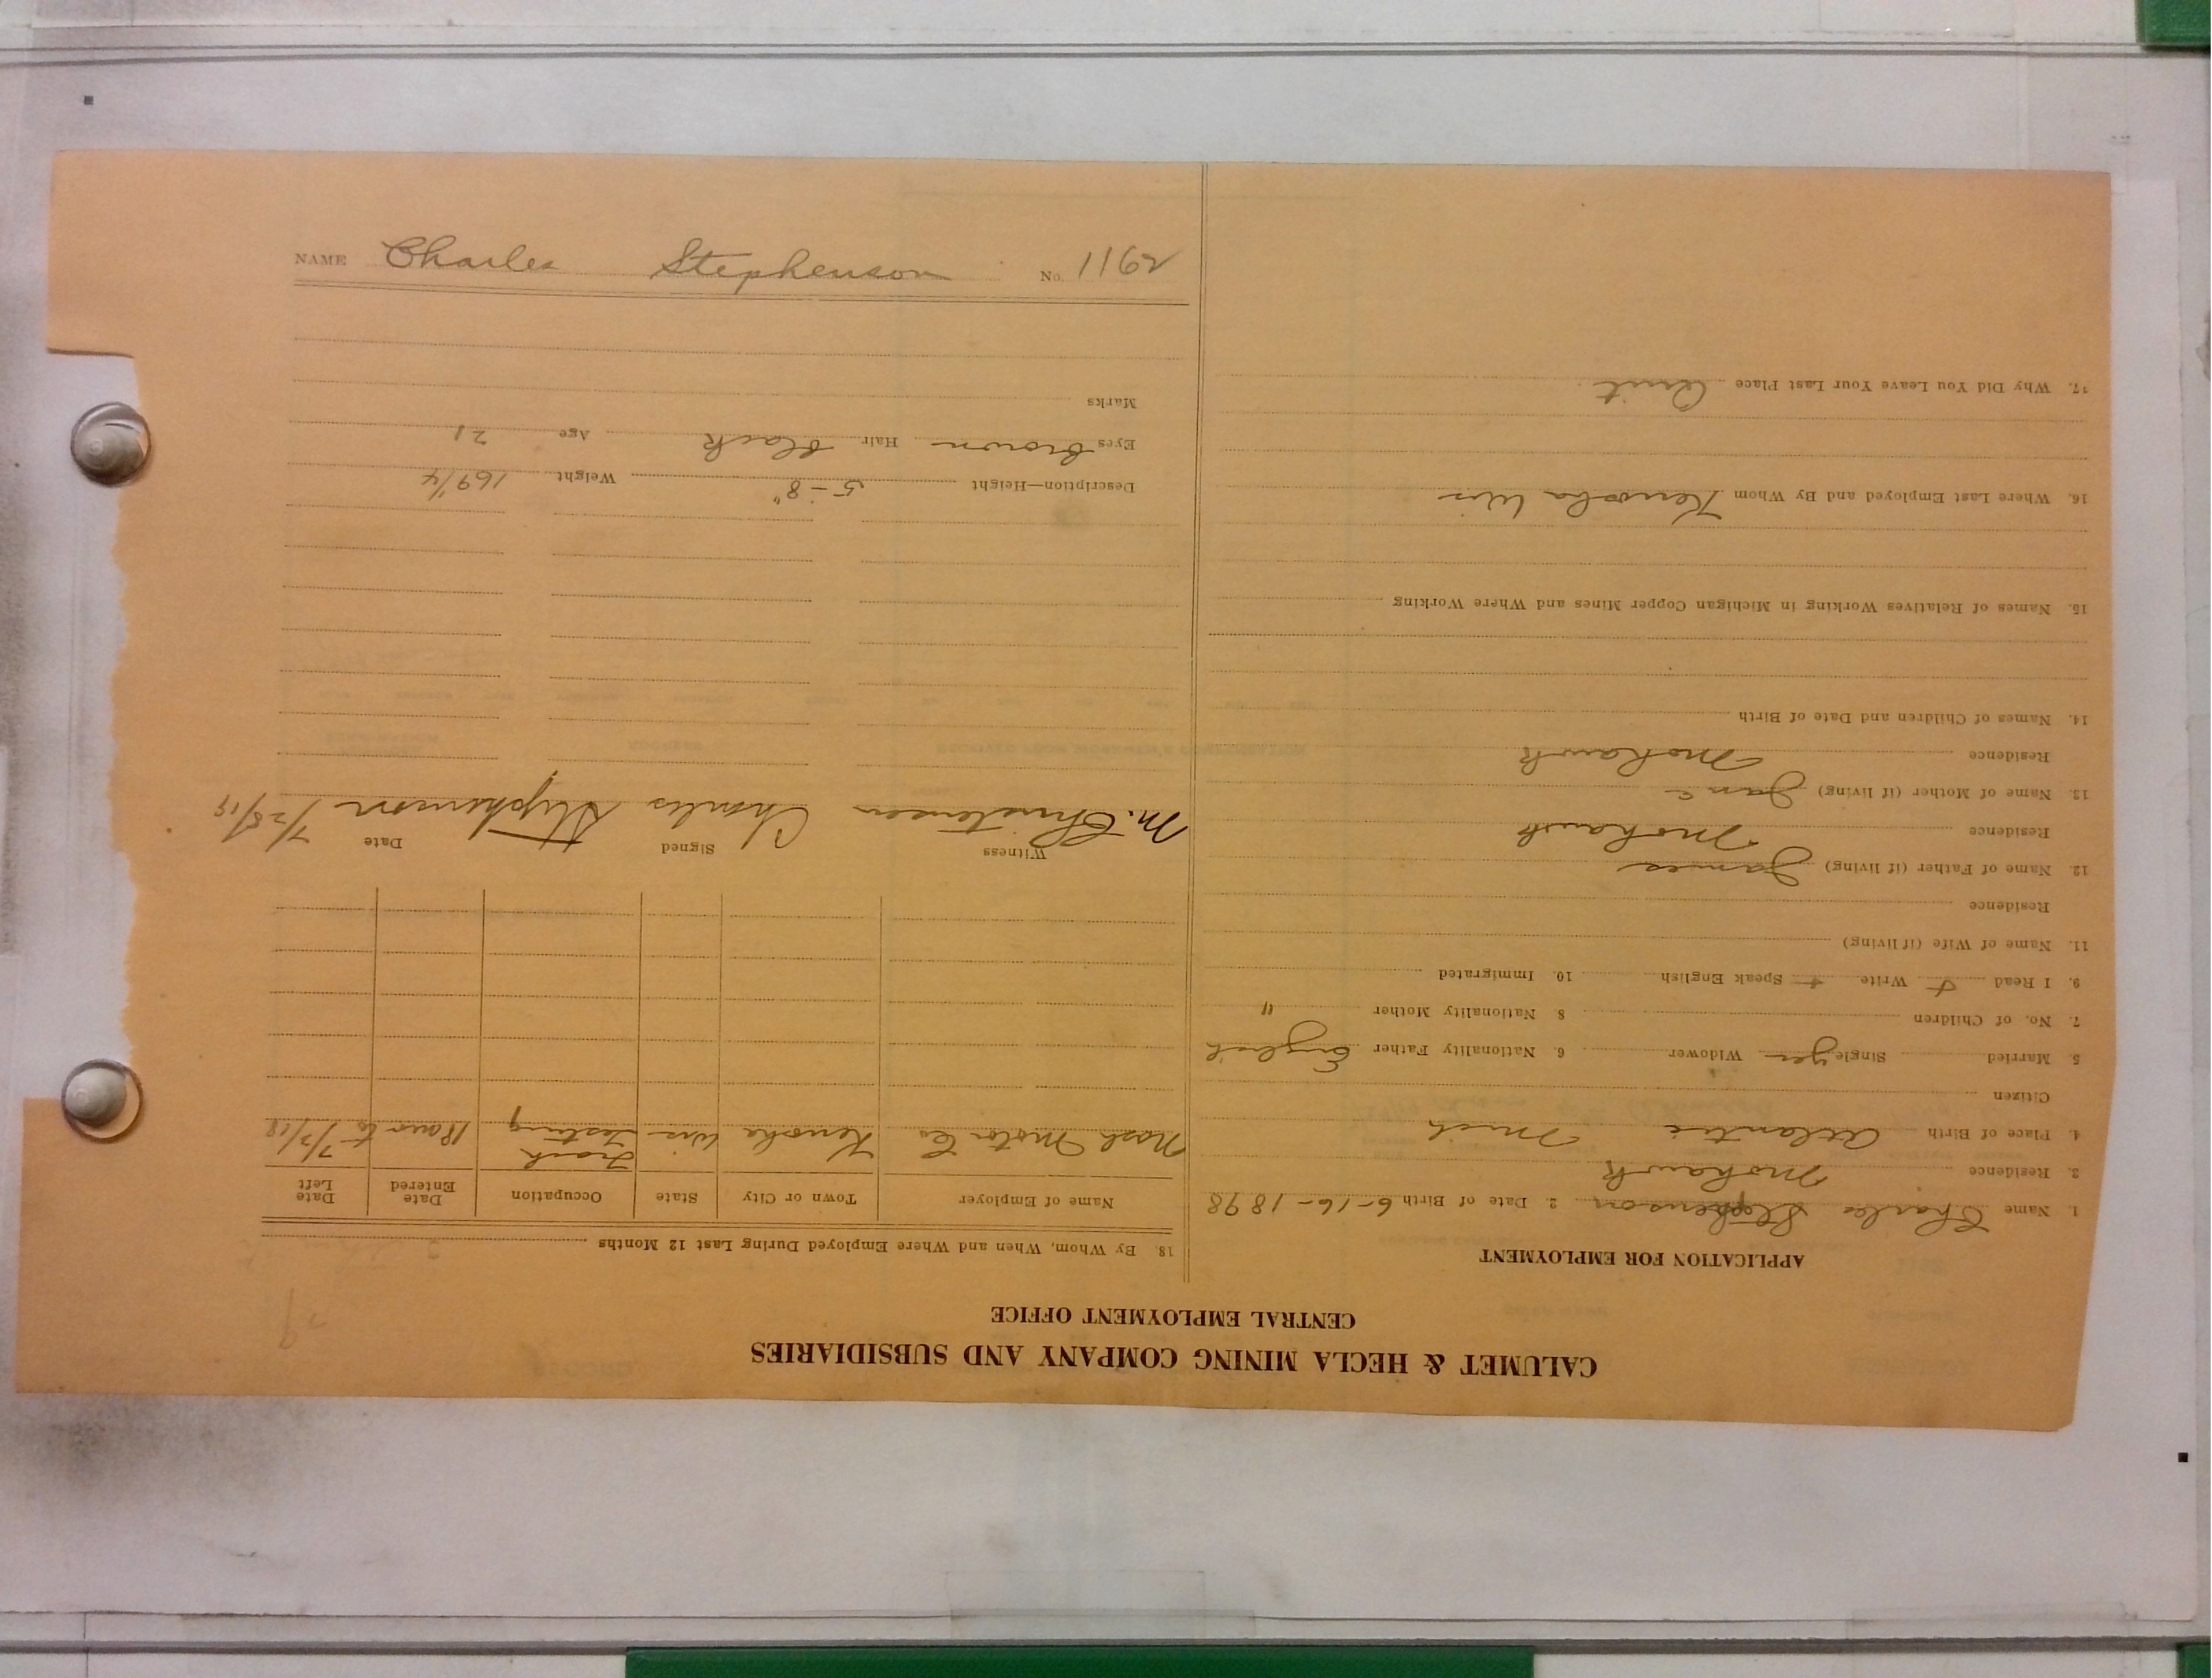 CALUMET & HECLA MINING COMPANY AND SUBSIDIARIES
CENTRAL EMPLOYMENT OFFICE
APPLICATION FOR EMPLOYMENT
1. Name Charles Stephenson 2. Date of Birth 6-16-1898
3. Residence Mohawk
4. Place of Birth Atlantic Mich
Citizen
5. Married Single yes Widower 6. Nationality Father English
7. No. of Children 8. Nationality Mother "
9. I Read + Write + Speak English 10. Immigrated
11. Name of Wife (if living)
Residence
12. Name of Father (if living) James
Residence Mohawk
13. Name of Mother (if living) Jane
Residence Mohawk
14. Names of Children and Date of Birth
15. Names of Relatives Working in Michigan Copper Mines and Where Working
16. Where Last Employed and By Whom Kenosha Wis
17. Why Did You Leave Your Last Place Quit
18. By Whom, When and Where Employed During Last 12 Months
Name of Employer Town or City State Occupation Date Entered Date Left
Nash Motor Co Kenosha Wis Testing 7/3/18
Witness Signed Date
M. Christensen Charles Stephenson 7/25/18
Description—Height 5-8" Weight 169 1/4
Eyes Brown Hair Black Age 21
Marks
NAME Charles Stephenson No. 1162